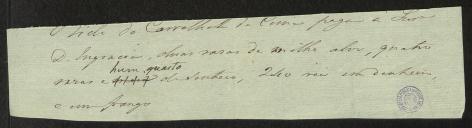 O dicto do Carvalhal de Cima paga a
D. Engracia, duas rasas de milho alvo, quatro
rasas e hum quarto de centeio, 240 reis em dinheiro,
e um frango